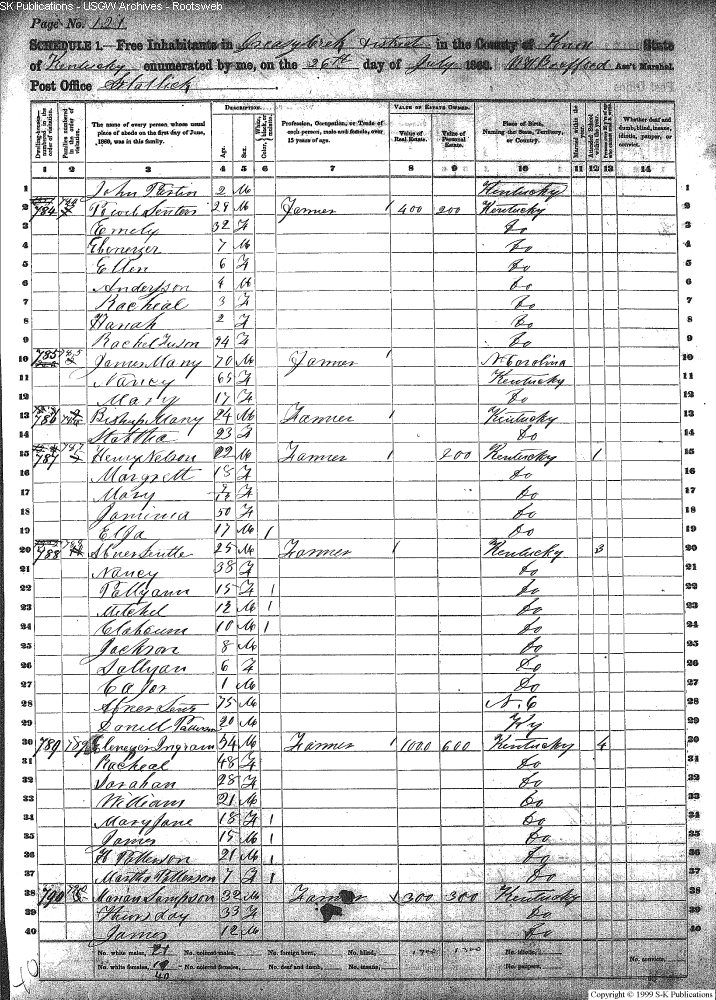 SK Publications - USGW Archives - Rootsweb
Page No. 121
SCHEDULE 1.—Free Inhabitants in Greasy Creek District in the County of Knox State
of Kentucky enumerated by me, on the 26th day of July 1860. Ass't Marshal.
Post Office
Dwelling-houses— numbered in the order of visitation.
Families numbered in the order of visitation.
The name of every person whose usual place of abode on the first day of June, 1860, was in this family.
DESCRIPTION.
Age.
Sex.
Color, White, black, or mulatto.
Profession, Occupation, or Trade of each person, male and female, over 15 years of age.
VALUE OF ESTATE OWNED.
Value of Real Estate.
Value of Personal Estate.
Place of Birth, Naming the State, Territory, or Country.
Married within the year.
Attended School within the year.
Whether deaf and dumb, blind, insane, idiotic, pauper, or convict.
1 2 3 4 5 6 7 8 9 10 11 12 13 14
1 John Partin 2 M Kentucky 1
2 784 29 M Farmer 1 400 200 Kentucky 2
3 Emely 32 F Do 3
4 Ebenezer 7 M Do 4
5 Ellen 6 F Do 5
6 Andersson 4 M Do 6
7 Racheal 3 F Do 7
8 Hanah 2 F Do 8
9 Rachel Fuson 94 F Do 9
10 785 James Many 70 M Farmer 1 N Carolina 10
11 Nancy 65 F Kentucky 11
12 Mary 17 F 12
13 786 Bishup Many 24 M Farmer 1 Kentucky 13
14 Stabitha 23 F Do 14
15 787 Henry Nelson 22 M Farmer 1 200 Kentucky 1 15
16 Margrett 18 F Do 16
17 Mary F Do 17
18 Jaminia 50 F Do 18
19 17 M 1 Do 19
20 788 Abner 25 M Farmer 1 Kentucky 3 20
21 Nancy 38 F Do 21
22 Pollyann 15 F 1 Do 22
23 Mitchel 12 M 1 Do 23
24 Clabourn 10 M 1 Do 24
25 Jackson 8 M Do 25
26 Sallyan 6 F Do 26
27 1 M Do 27
28 Abner 75 M N. C 28
29 20 M Ky 29
30 789 789 Ebenezer Ingram 54 M Farmer 1 1000 600 Kentucky 4 30
31 Racheal 48 F Do 31
32 Sarahan 28 F Do 32
33 William 21 M Do 33
34 Mary Jane 18 F 1 Do 34
35 James 15 M 1 Do 35
36 Patterson 21 M 1 Do 36
37 Martha Patterson 7 F 1 Do 37
38 790 Sampson 32 M Farmer 1 300 300 Kentucky 38
39 33 F Do 39
40 James 12 M Do 40
No. white males, 21 No. colored males, No. foreign born, No. blind, No. idiotic, No. convicts,
No. white females, 19 No. colored females, No. deaf and dumb, No. insane, No. paupers,
40
Copyright © 1999 S-K Publications